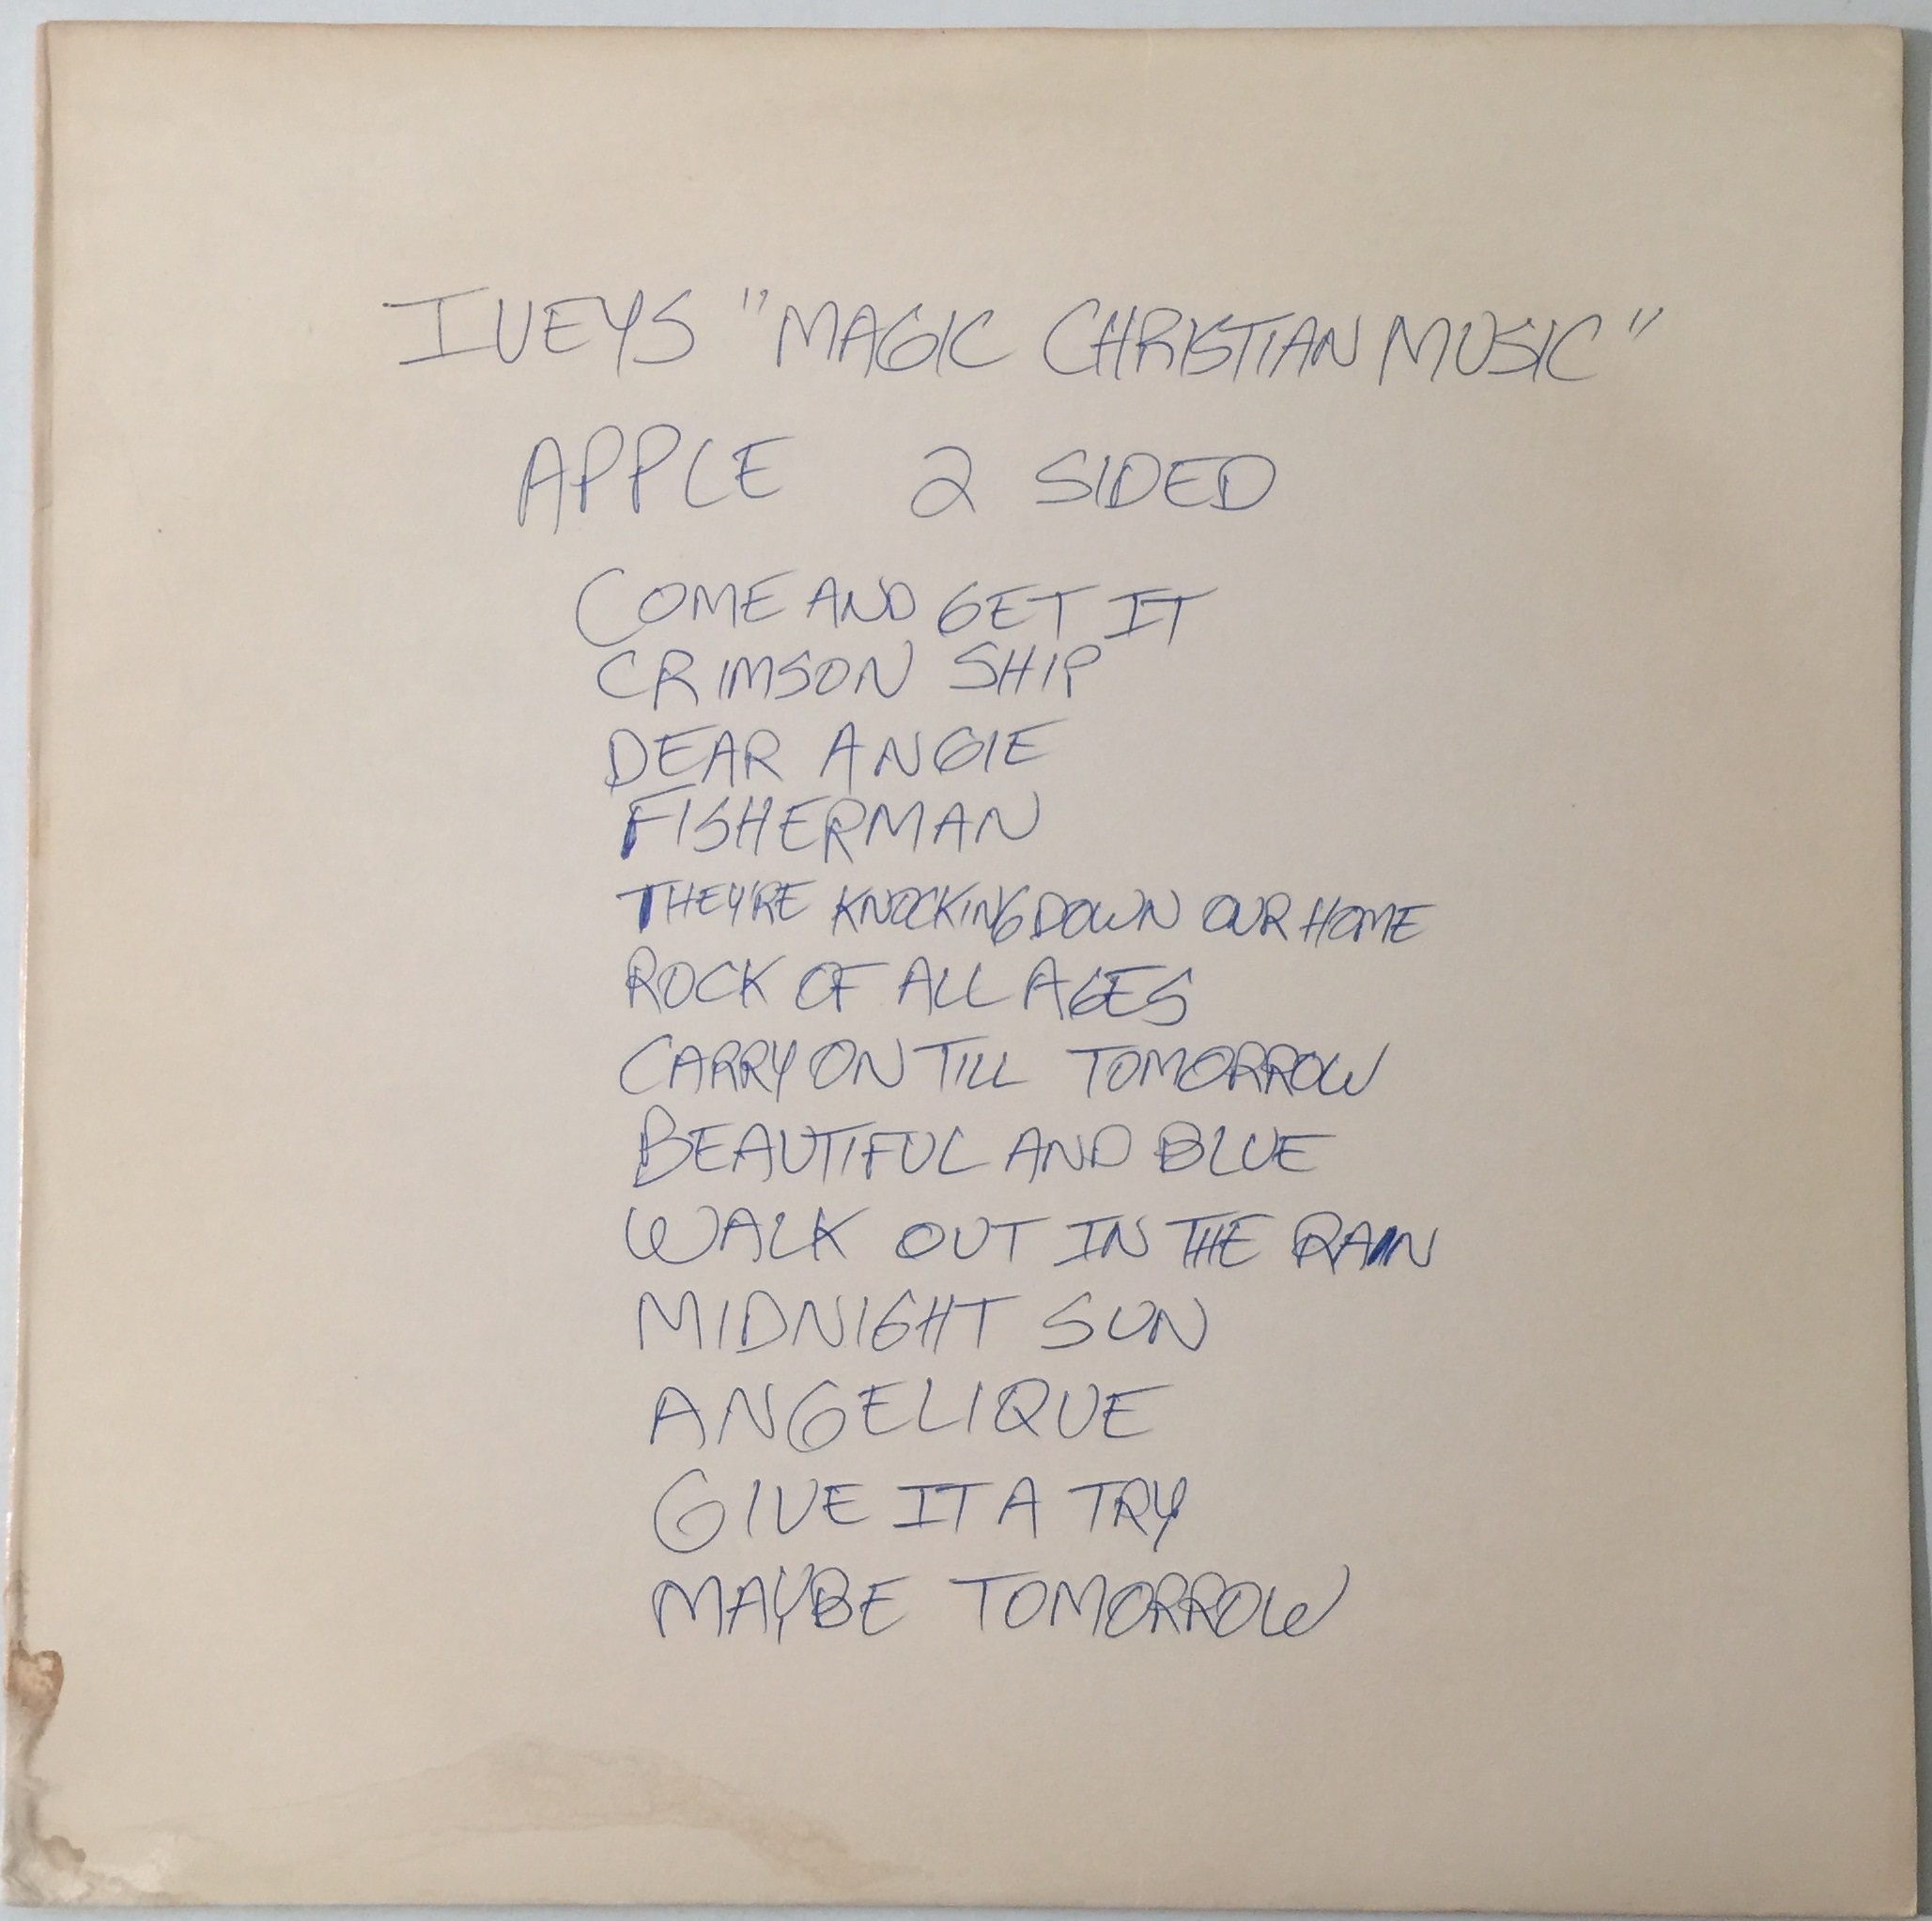 IVEYS "MAGIC CHRISTIAN MUSIC"
APPLE 2 SIDED
COME AND GET IT
CRIMSON SHIP
DEAR ANGIE
FISHERMAN
THEY'RE KNOCKING DOWN OUR HOME
ROCK OF ALL AGES
CARRY ON TILL TOMORROW
BEAUTIFUL AND BLUE
WALK OUT IN THE RAIN
MIDNIGHT SUN
ANGELIQUE
GIVE IT A TRY
MAYBE TOMORROW